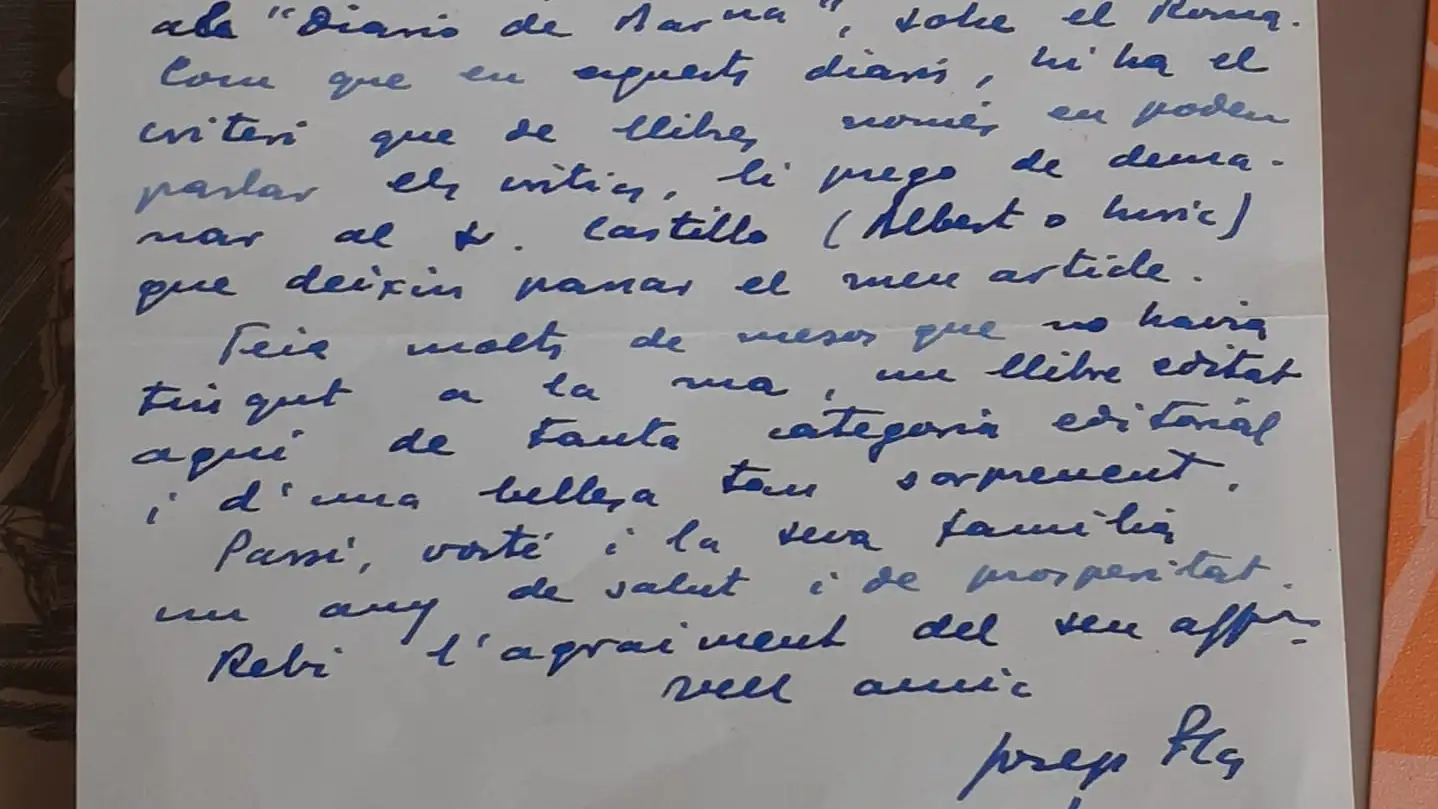 al "Diario de Barna", sobre el Roma.
Com que en aquests diaris, hi ha el
criteri que de llibres només en poden
parlar els crítics, li prego de dema-
nar al Sr. Castillo (Albert o Enric)
que deixin passar el meu article.
Feia molts de mesos que no havia
tingut a la ma, un llibre editat
aquí de tanta categoria editorial
i d'una bellesa tan sorprenent.
Passi, vosté i la seva família
un any de salut i de prosperitat.
Rebi l'agraiment del seu
vell amic
Josep Pla